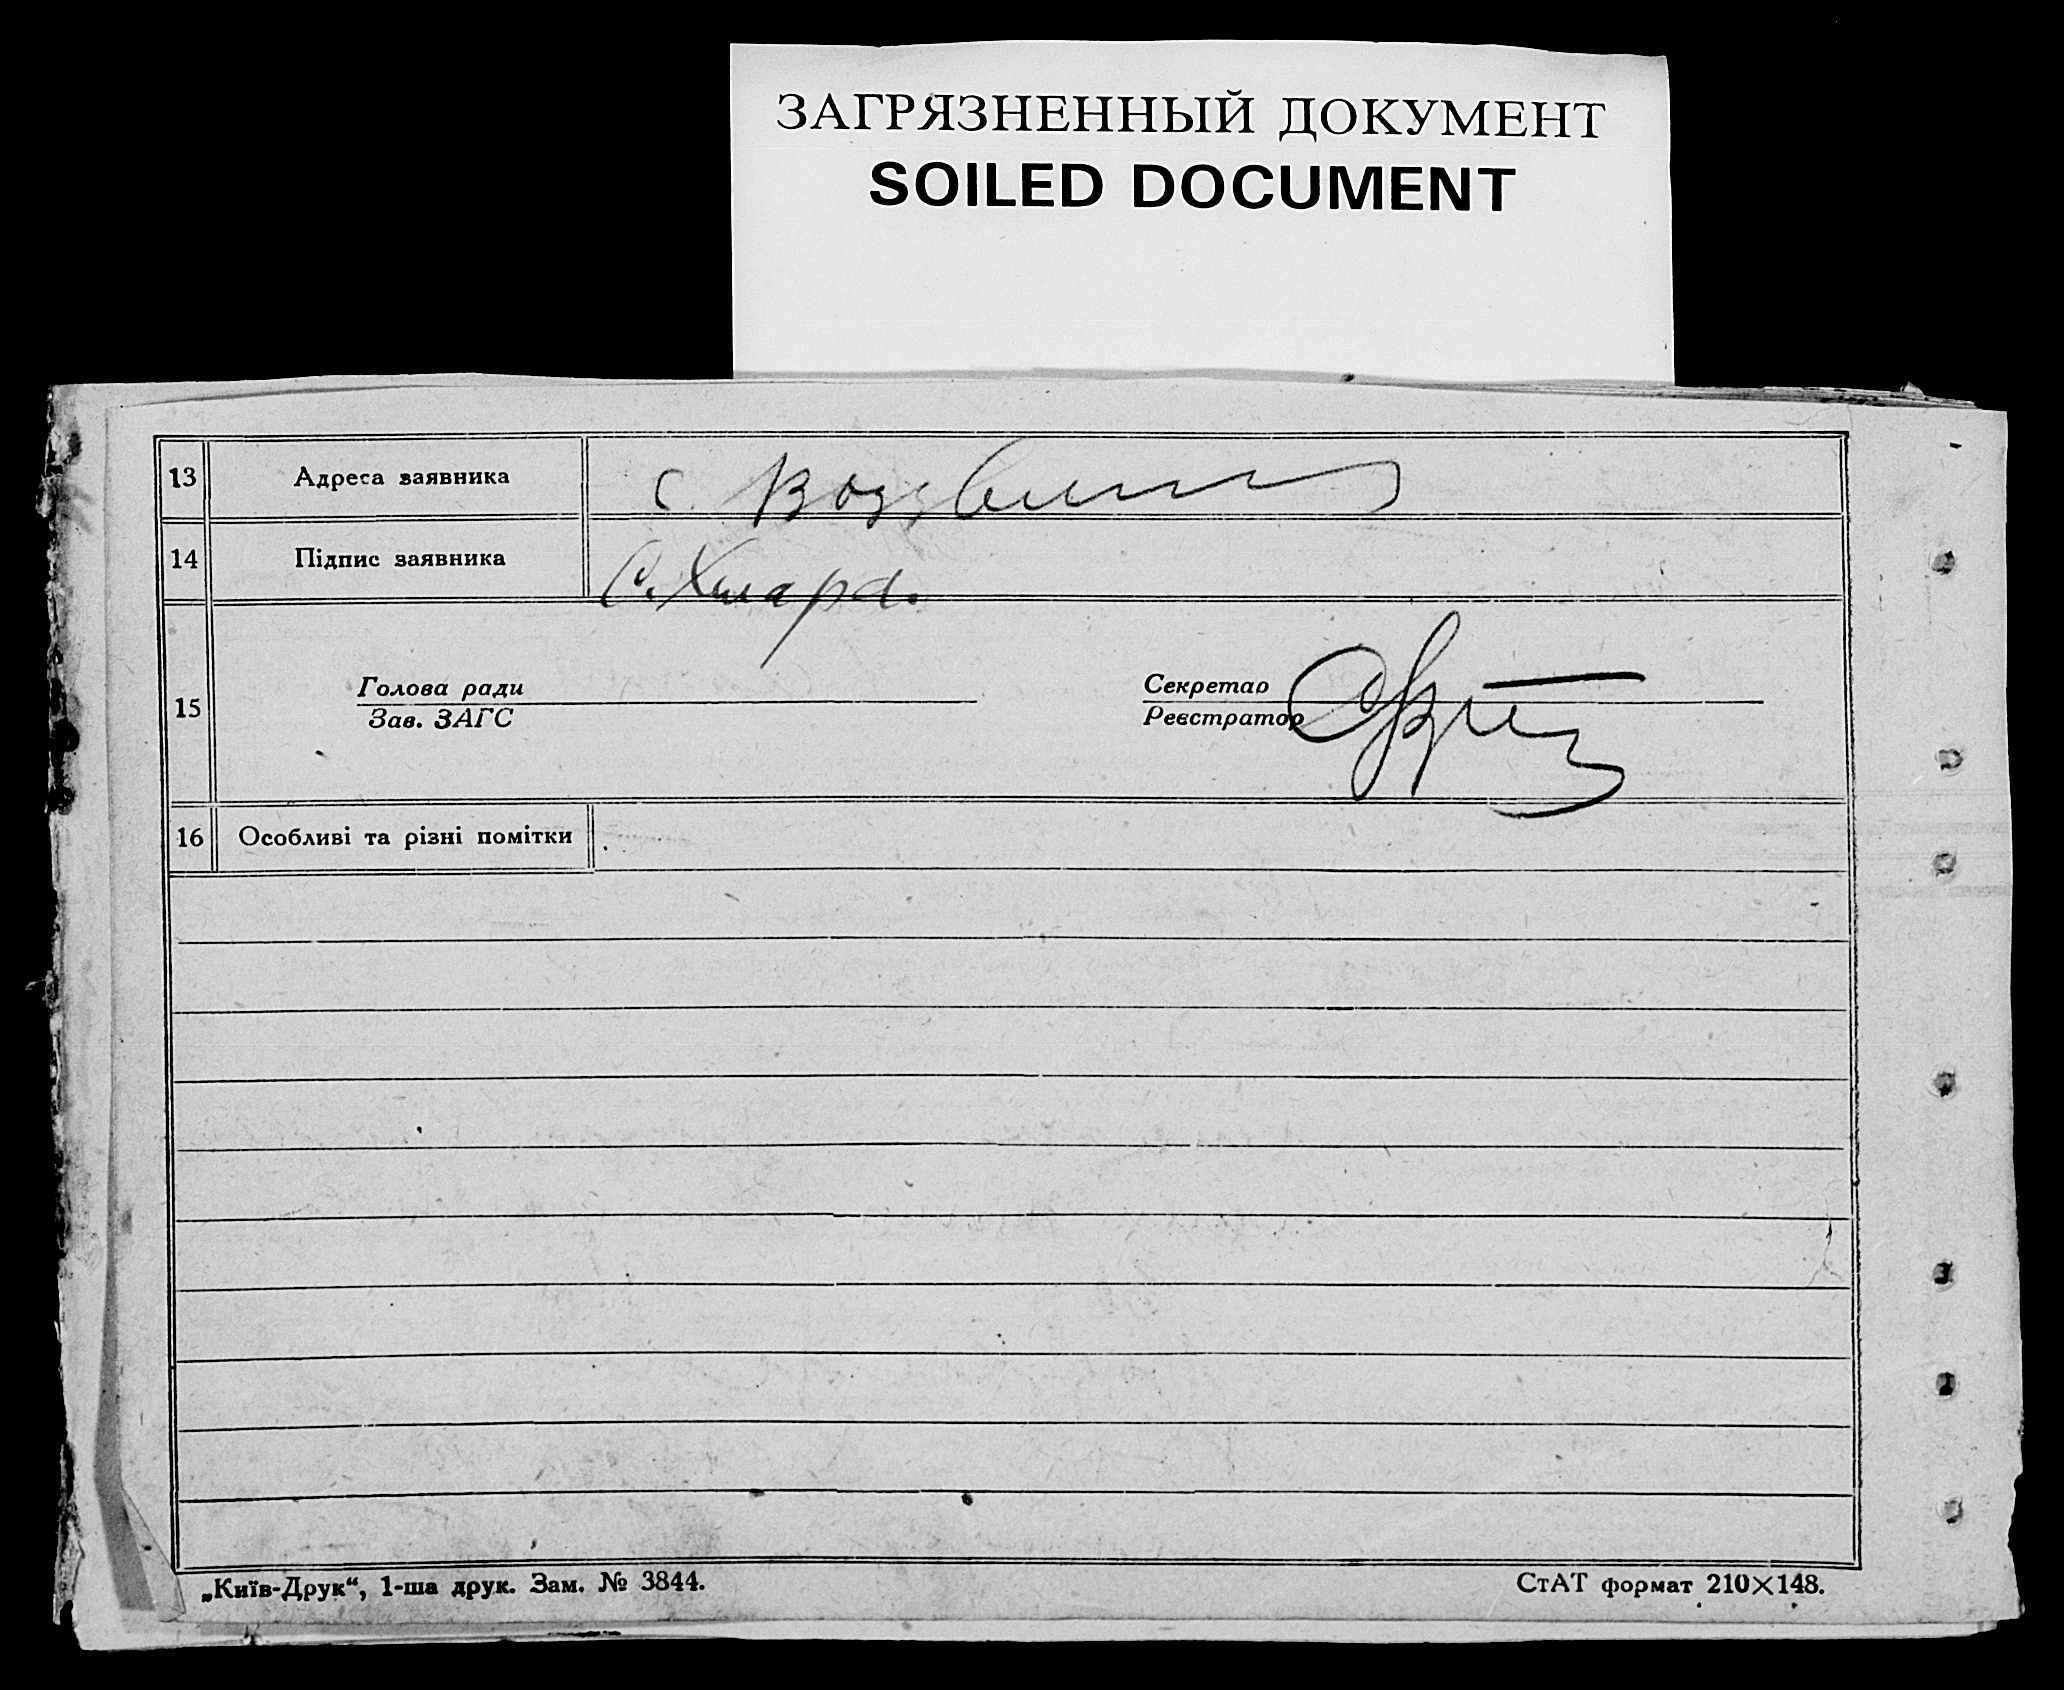 ЗАГРЯЗНЕННЫЙ ДОКУМЕНТ
SOILED DOCUMENT
13 Адреса заявника с.
14 Підпис заявника С. Хмара.
15
Голова ради Секретар
Зав. ЗАГС Реєстратор
16 Особливі та різні помітки
„Київ-Друк“, 1-ша друк. Зам. № 3844. СтАТ формат 210×148.